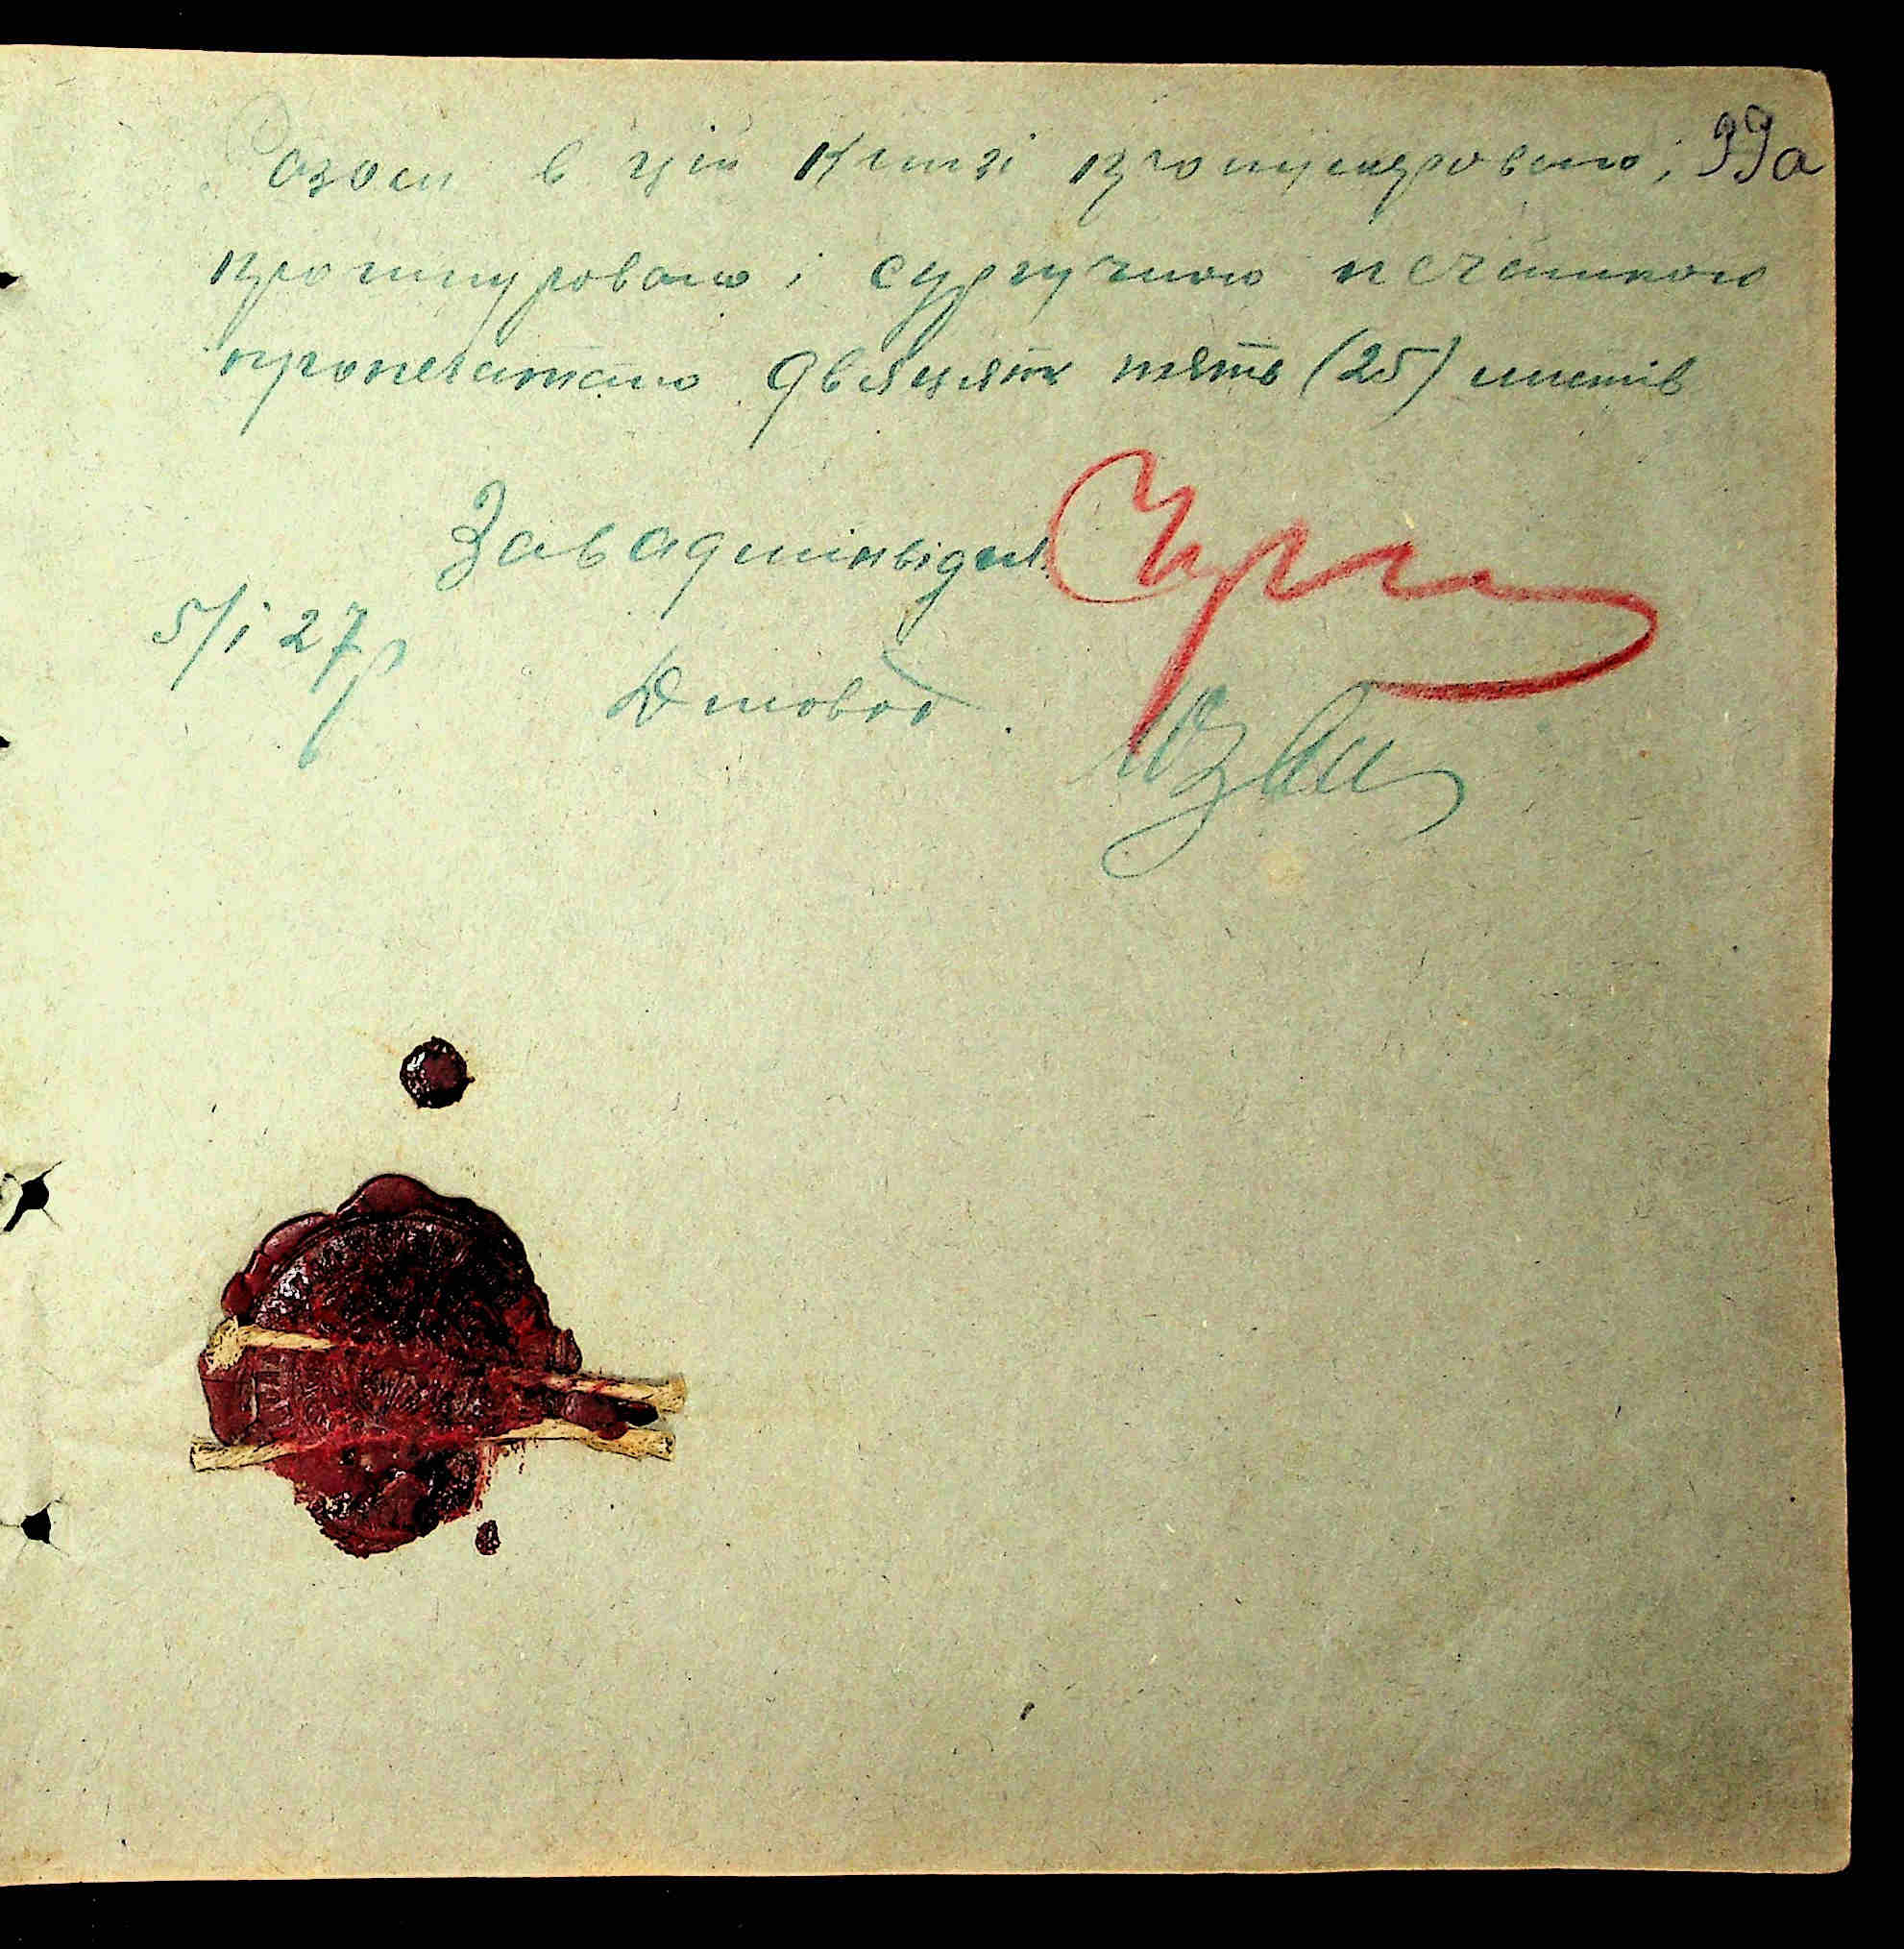 99а
Разом в цій Книзі пронумеровано,
прошнуровано і сургучною печаткою
пропечатано двадцять пять (25) листів
Завадмінвідділ
5/І 27р
Діловод